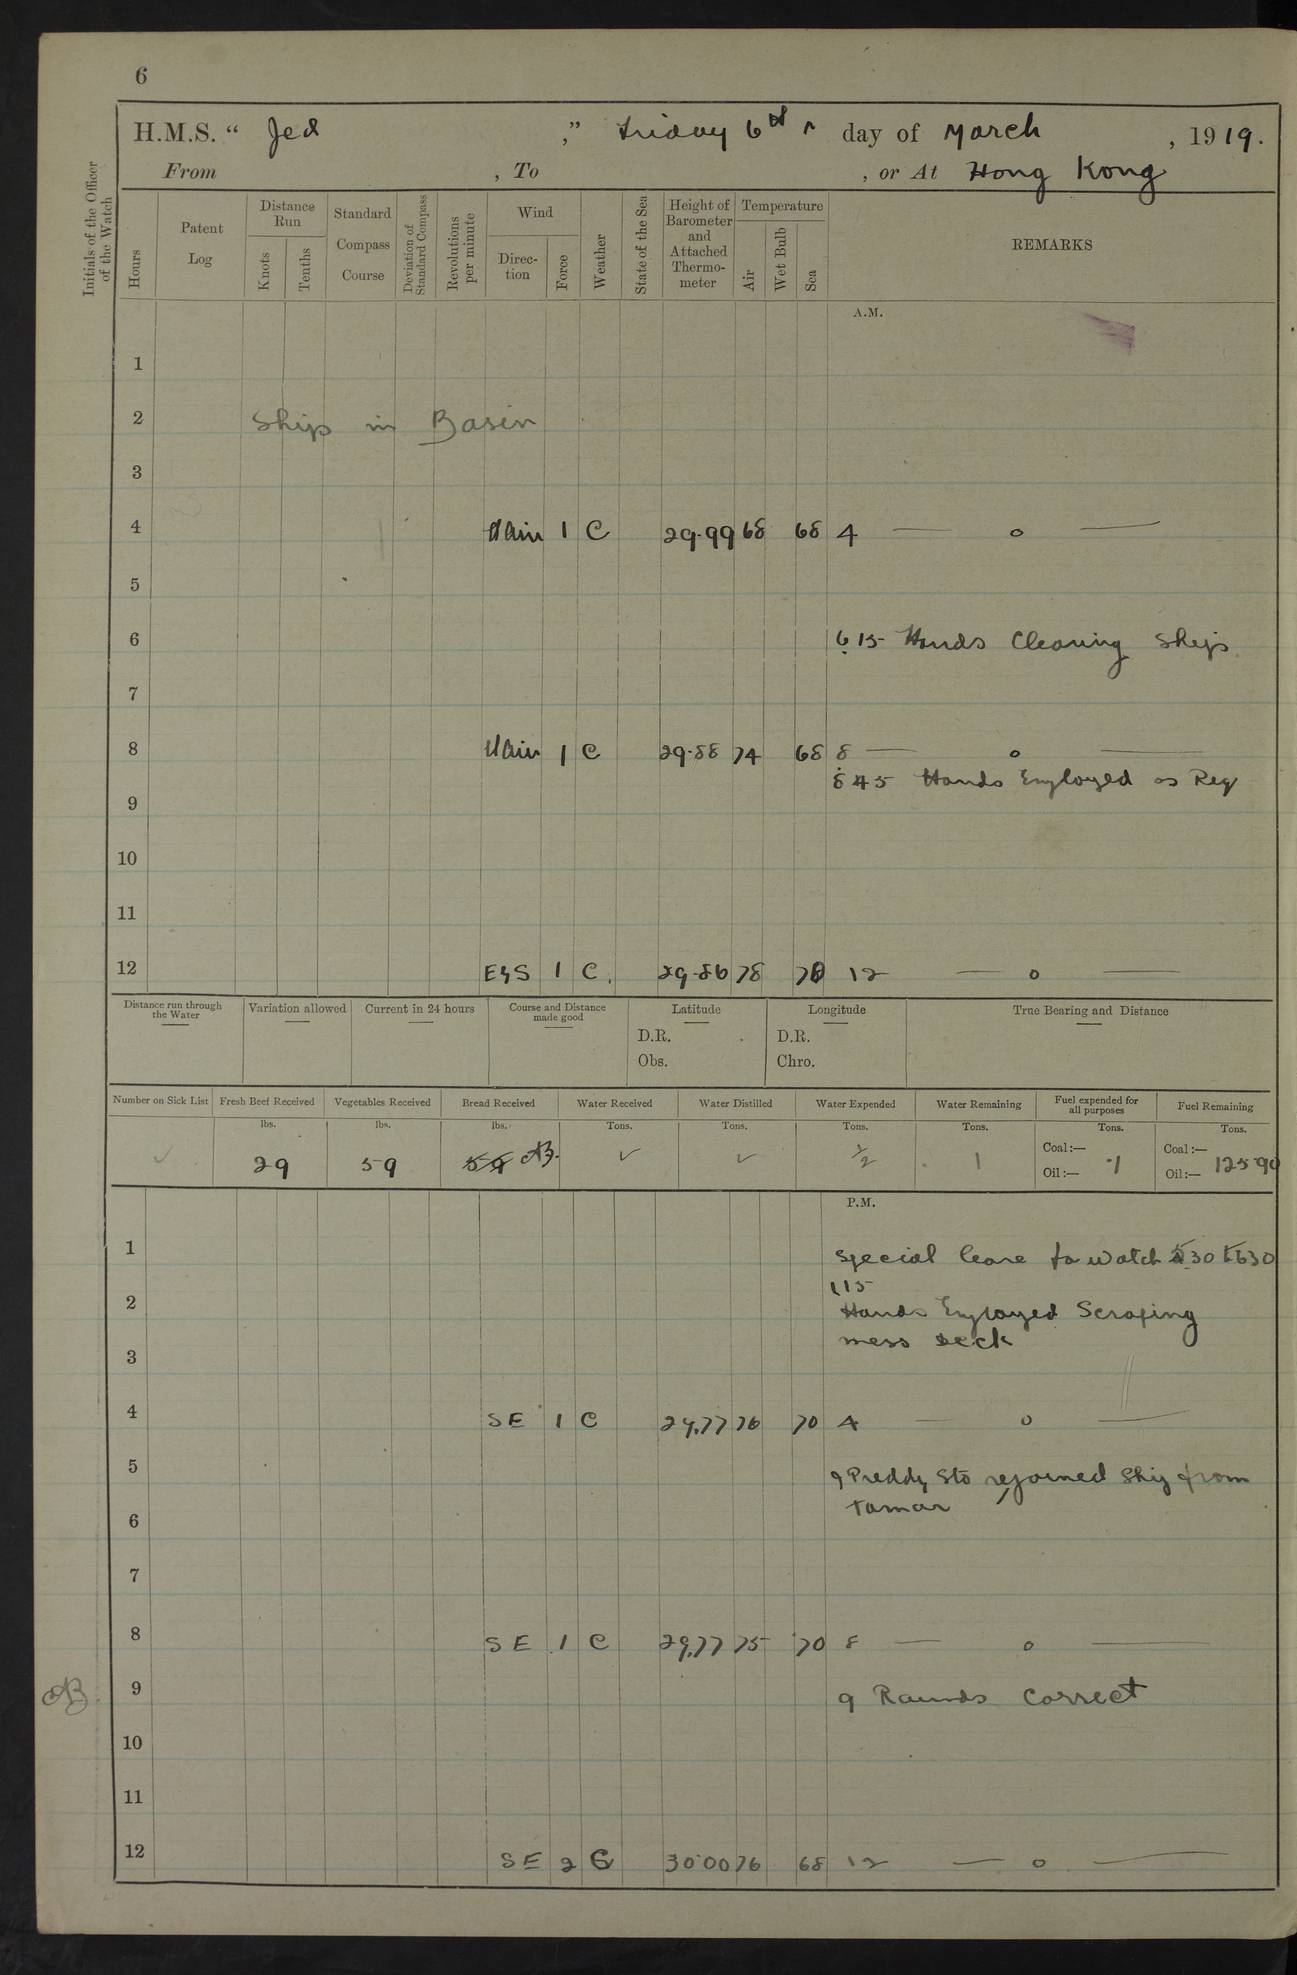 6
H.M.S. “ Jed ” Friday 6th day of March , 1919.
From , To , or At Hong Kong
Initials of the Officer of the Watch
Hours
Patent Log
Distance Run
Knots
Tenths
Standard Compass Course
Deviation of Standard Compass
Revolutions per minute
Wind
Direc-tion
Force
Weather
State of the Sea
Height of Barometer and Attached Thermo-meter
Temperature
Air
Wet Bulb
Sea
REMARKS
A.M.
1
2 Ships in Basin
3
4 1 C 29.99 68 68 4 — o —
5
6 6.15 Hands Cleaning Ship
7
8 1 C 29.88 74 68 8 — o —
8.45 Hands Employed as Req
9
10
11
12 1 C. 29.86 78 70 12 — o —
Distance run through the Water
Variation allowed
Current in 24 hours
Course and Distance made good
Latitude
D.R.
Obs.
Longitude
D.R.
Chro.
True Bearing and Distance
Number on Sick List Fresh Beef Received Vegetables Received Bread Received Water Received Water Distilled Water Expended Water Remaining Fuel expended for all purposes Fuel Remaining
lbs. lbs. lbs. Tons. Tons. Tons. Tons. Tons. Tons.
✓ 29 59 59 AB. ✓ ✓ 1/2 1 Coal:— Oil:— .1 Coal:— Oil:— 125.90
P.M.
1 Special leave to watch
1.15
2 Hands Employed Scraping
mess deck
3
4 SE 1 C 29.77 76 70 4 — o —
5 Preddy Sto rejoined Ship from
Tamar
6
7
8 SE 1 C 29.77 75 70 8 — o —
AB 9 9 Rounds Correct
10
11
12 SE 2 C 30.00 76 68 12 — o —